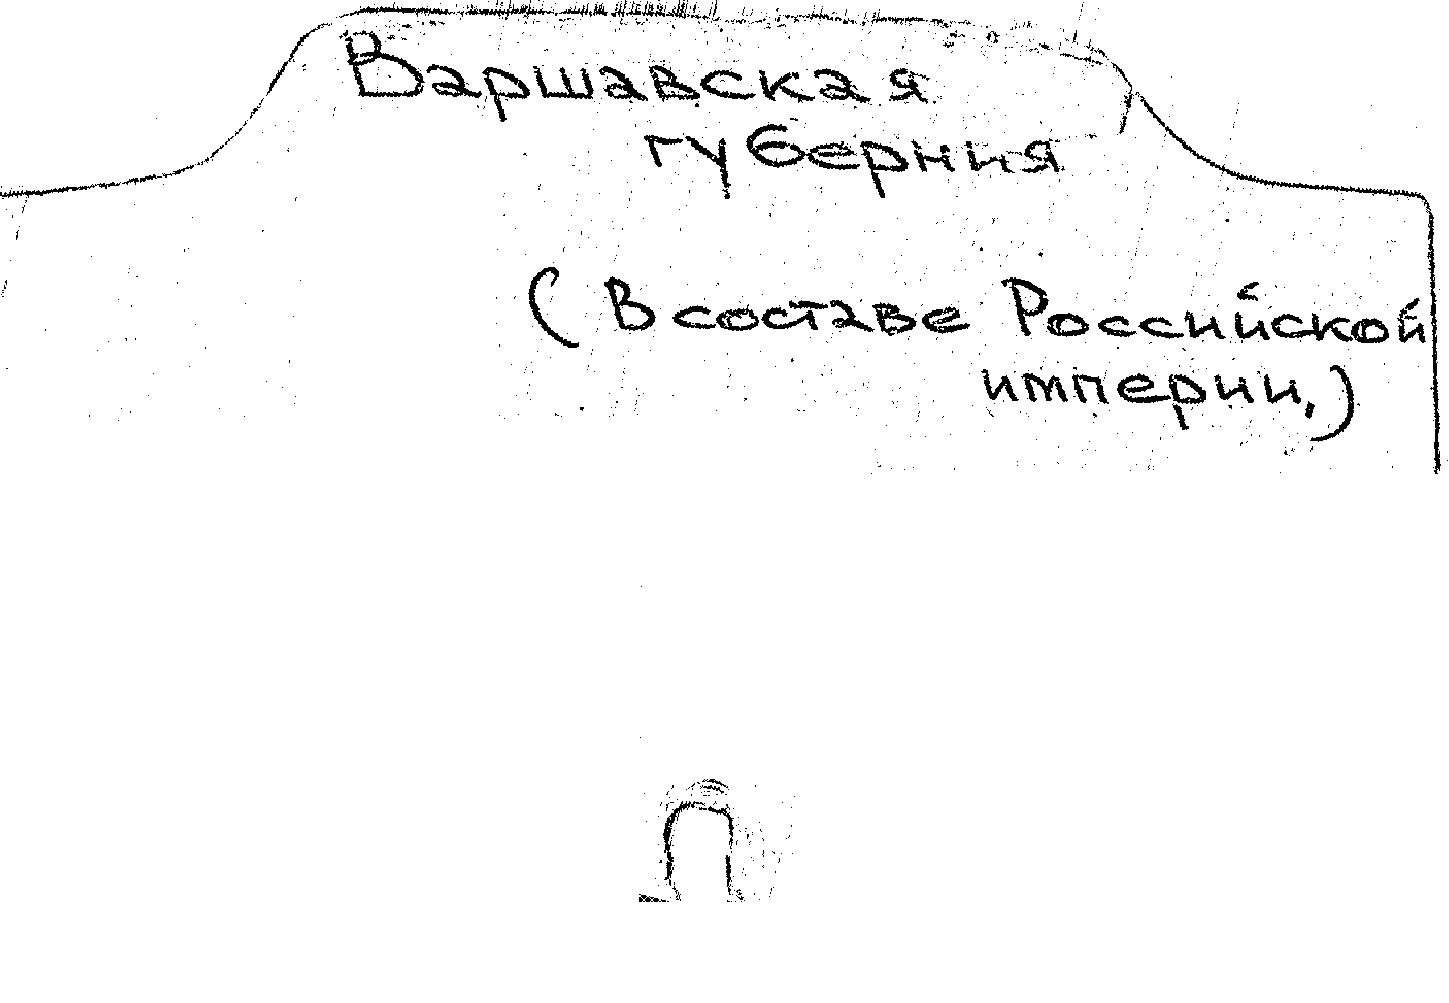 Варшавская
губерния
( В составе Российской
империи,)